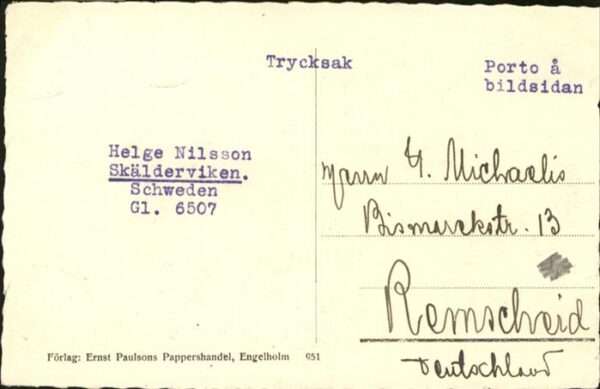 Trycksak
Porto å
bildsidan
Helge Nilsson
Skälderviken.
Schweden
Gl. 6507
Herrn G. Michaelis
Bismarckstr. 13
Remscheid
Deutschland
Förlag: Ernst Paulsons Pappershandel, Engelholm 951